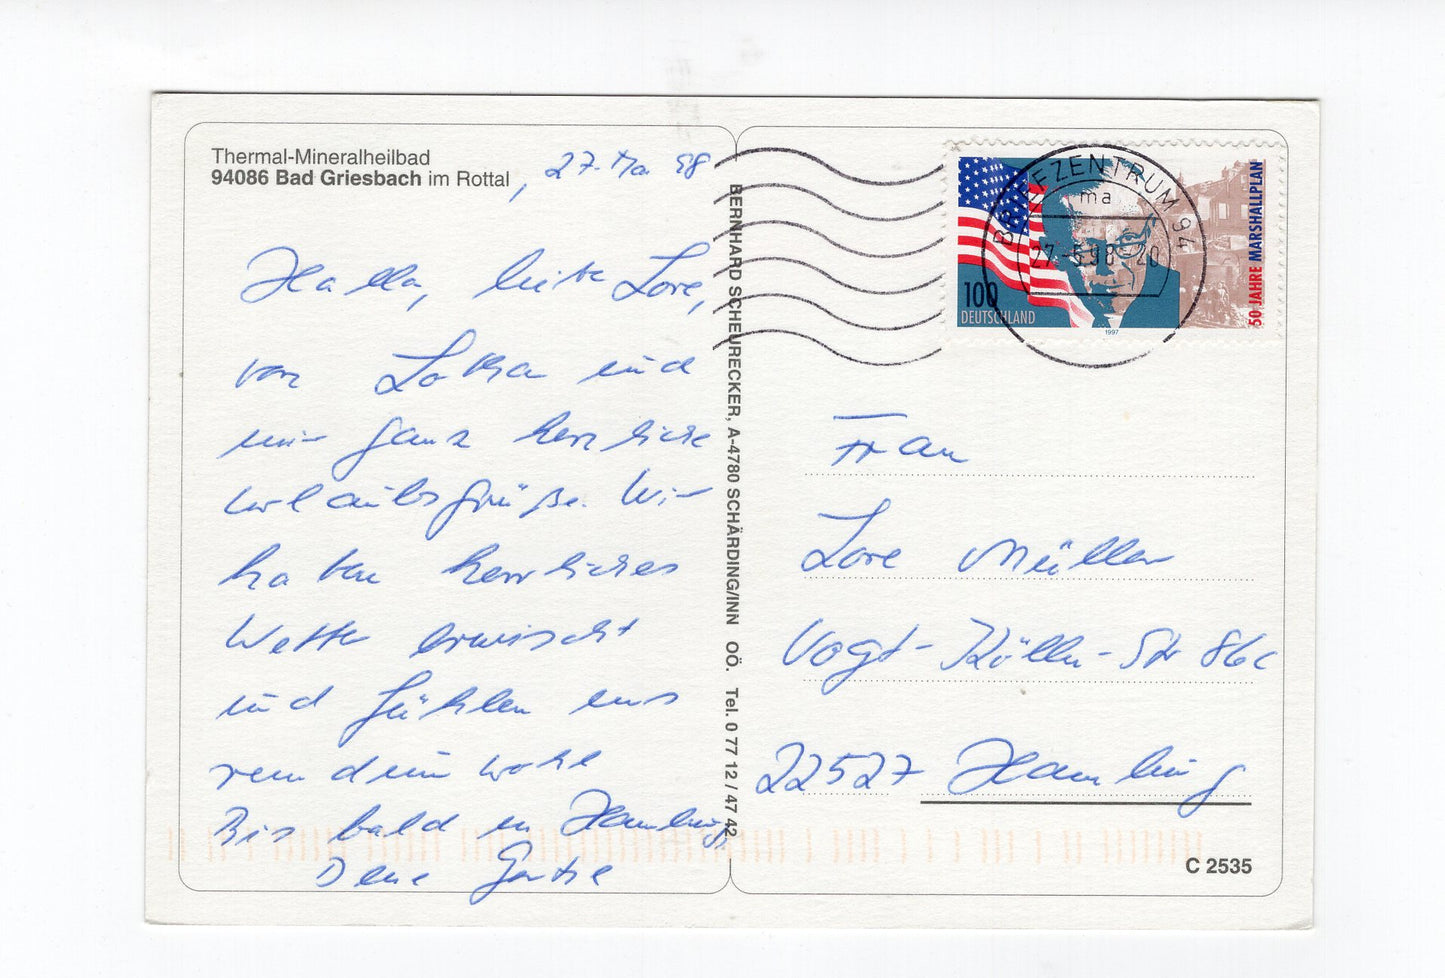 Thermal-Mineralheilbad
94086 Bad Griesbach im Rottal, 27. Mai 98
Hallo, liebe Lore,
von Lothar und
mir ganz herzliche
Urlaubsgrüße. Wir
haben herrliches
Wetter erwischt
und fühlen uns
rundum wohl
Bis bald in Hamburg,
Deine
BERNHARD SCHEURECKER, A-4780 SCHÄRDING/INN OÖ. Tel. 0 77 12 / 47 42
BRIEFZENTRUM 94
ma
27.-5.98-20
100
DEUTSCHLAND
1997
50 JAHRE MARSHALLPLAN
Frau
Lore Müller
Vogt-Kölln-Str 86c
22527 Hamburg
C 2535